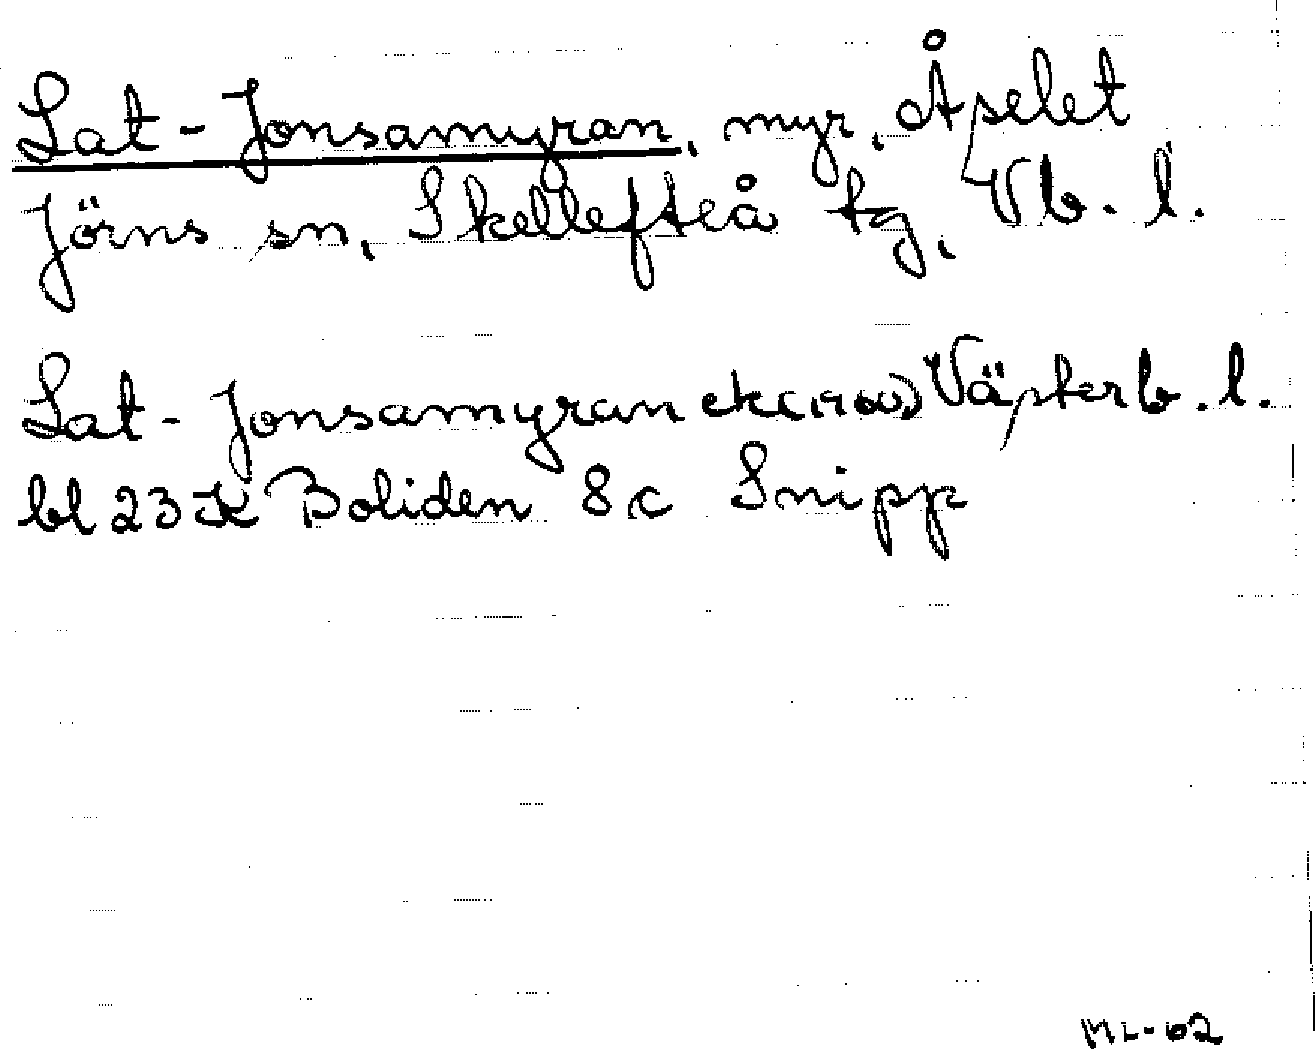 Lat-Jonsamyran, myr, Åselet
Jörns sn, Skellefteå tg, Vb. l.
Lat-Jonsamyran ek(190) Västerb. l.
bl 23K Boliden 8c Snipp
ML-62